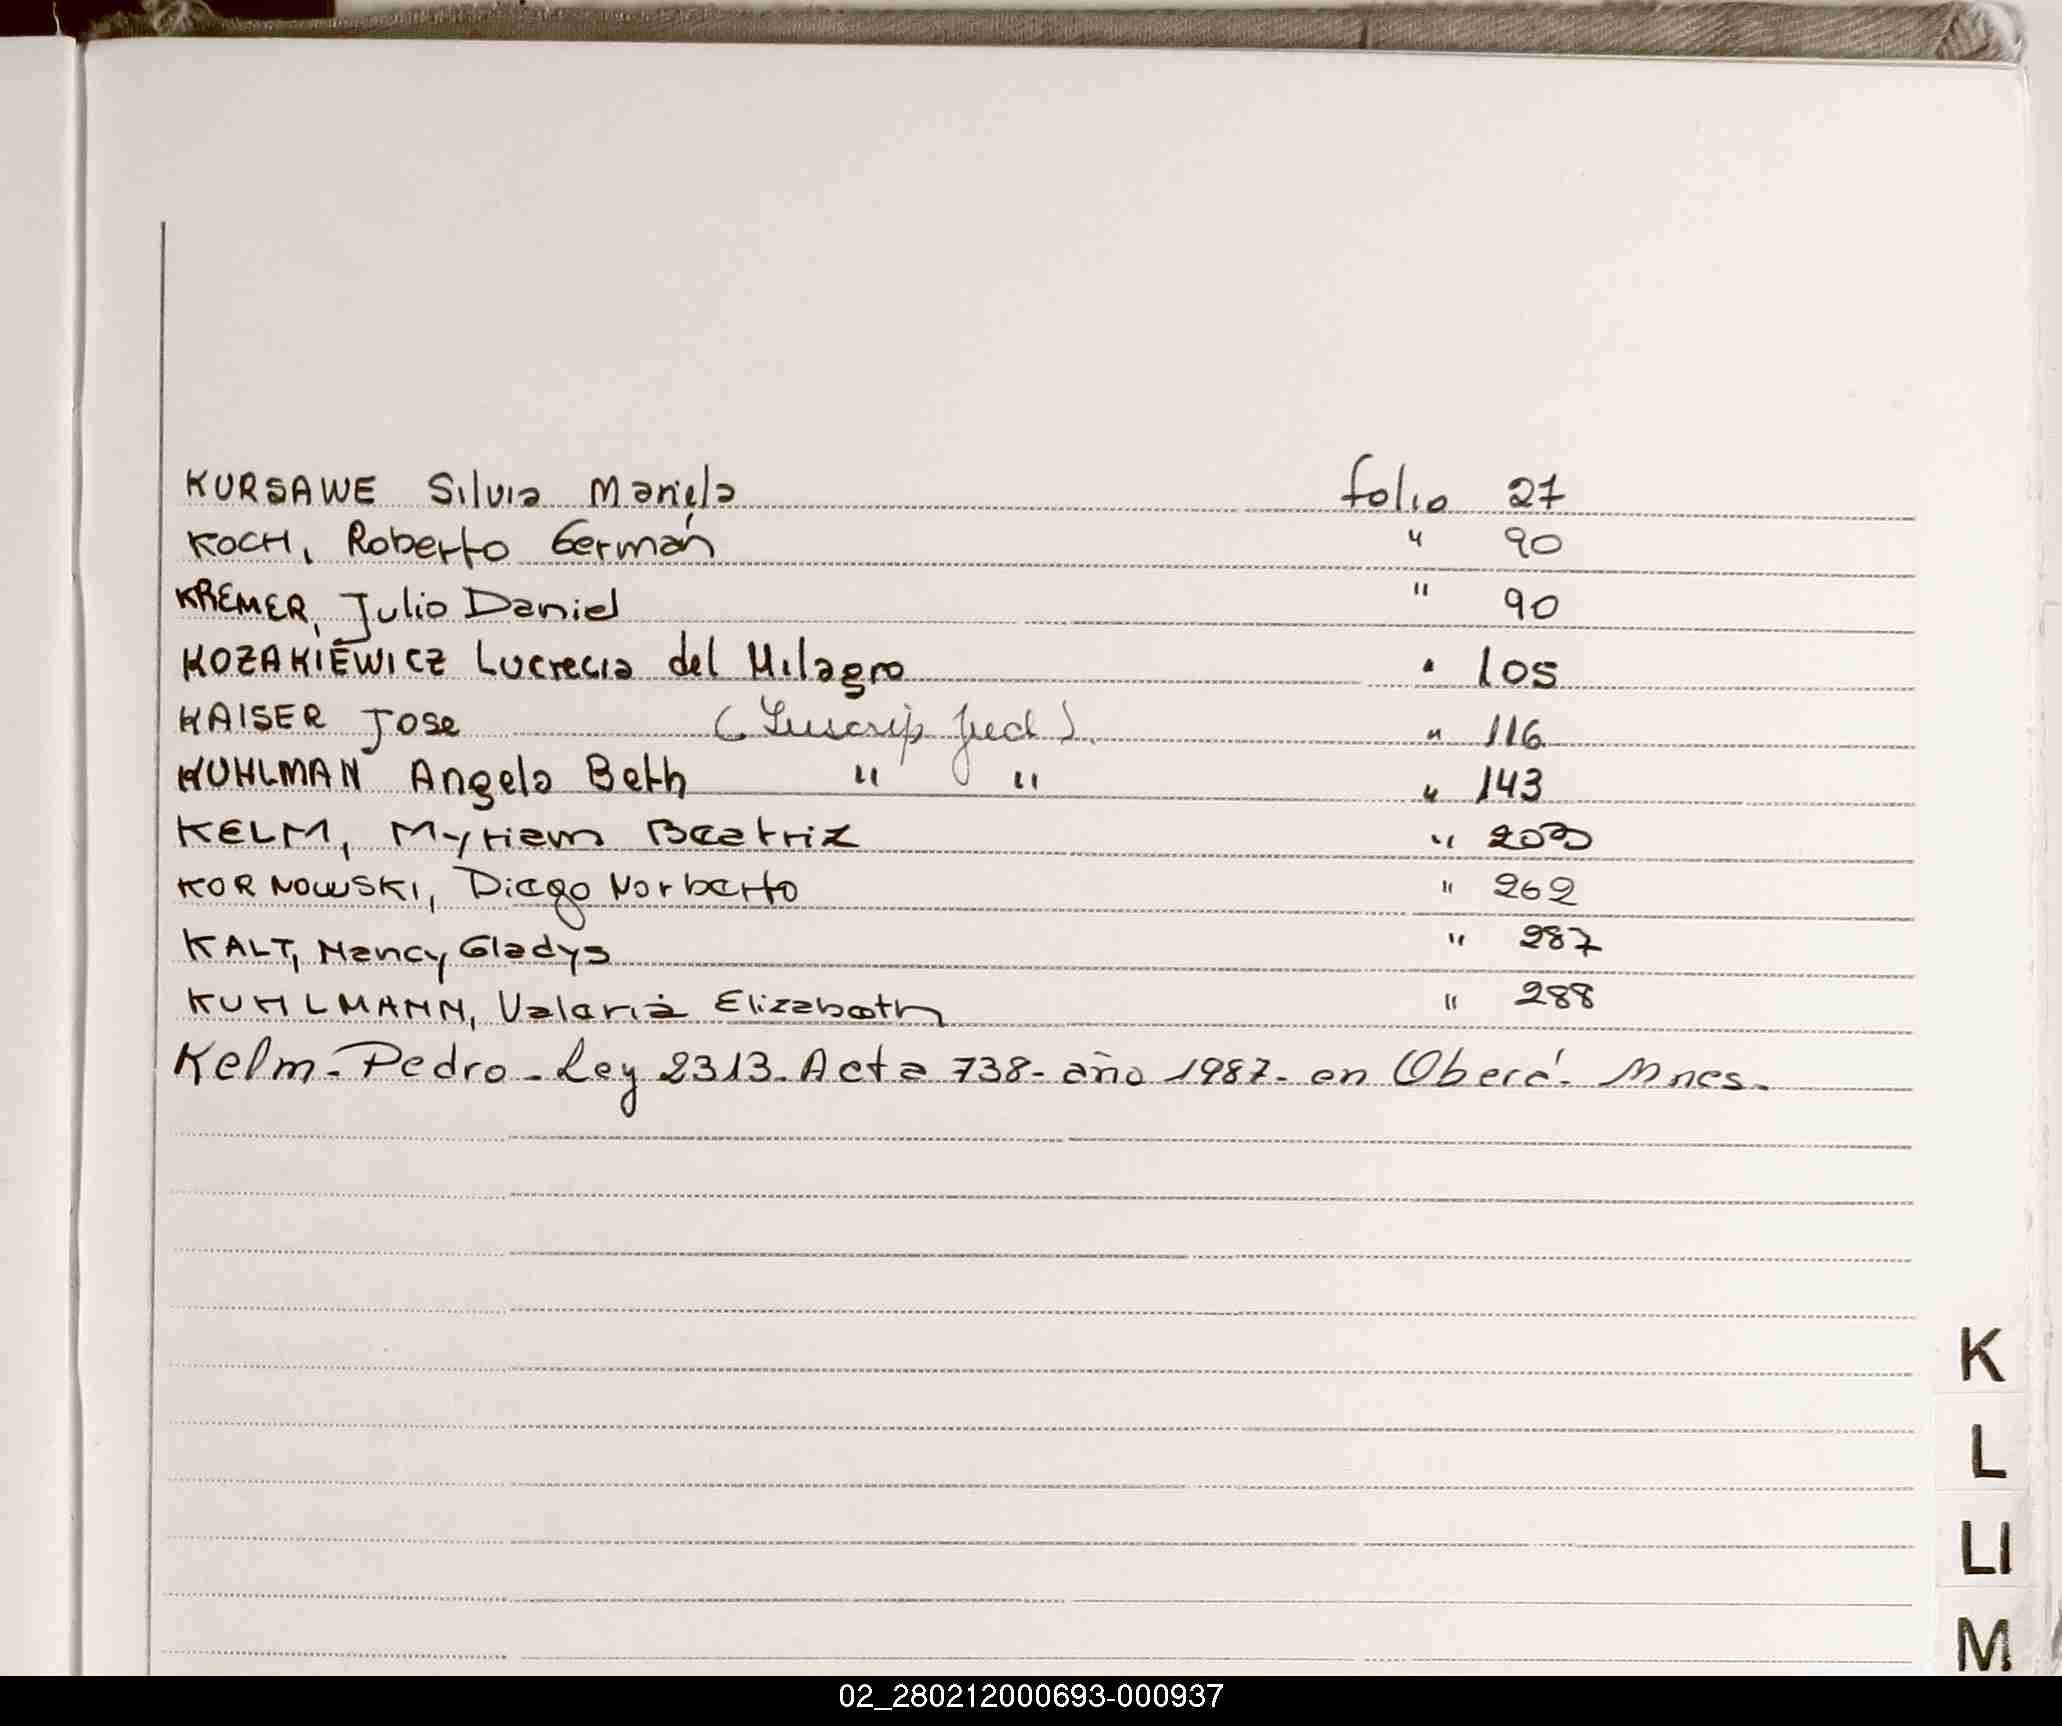 KURSAWE Silvia Mariela folio 27
KOCH, Roberto Germán " 90
KREMER, Julio Daniel " 90
KOZAKIEWICZ Lucrecia del Milagro " 105
KAISER Jose (Inscrip Jud). " 116
KUHLMAN Angela Beth " " " 143
KELM, Myriam Beatriz "
KORNOWSKI, Diego Norberto " 262
KALT, Nancy Gladys " 287
KUHLMANN, Valeria Elizabeth " 288
Kelm - Pedro - Ley 2313. Acta 738 - año 1987 - en Oberá - Mnes.
K
L
Ll
M
02_280212000693-000937